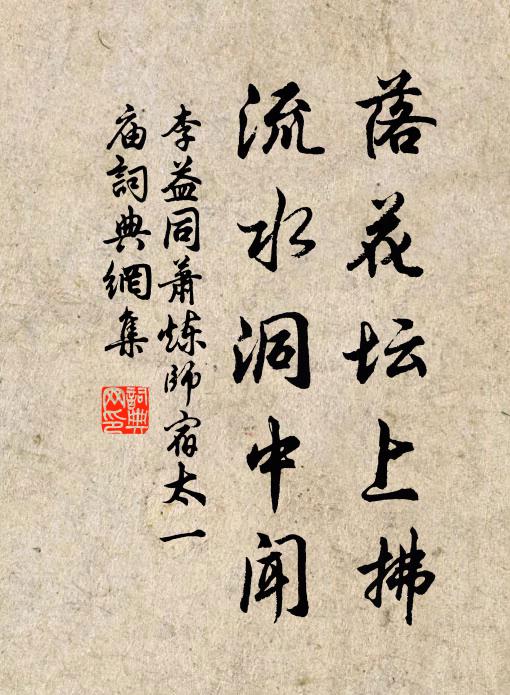 落花坛上拂
流水洞中闻
李益同萧炼师宿太一
庙詞典網集
詞典
网印